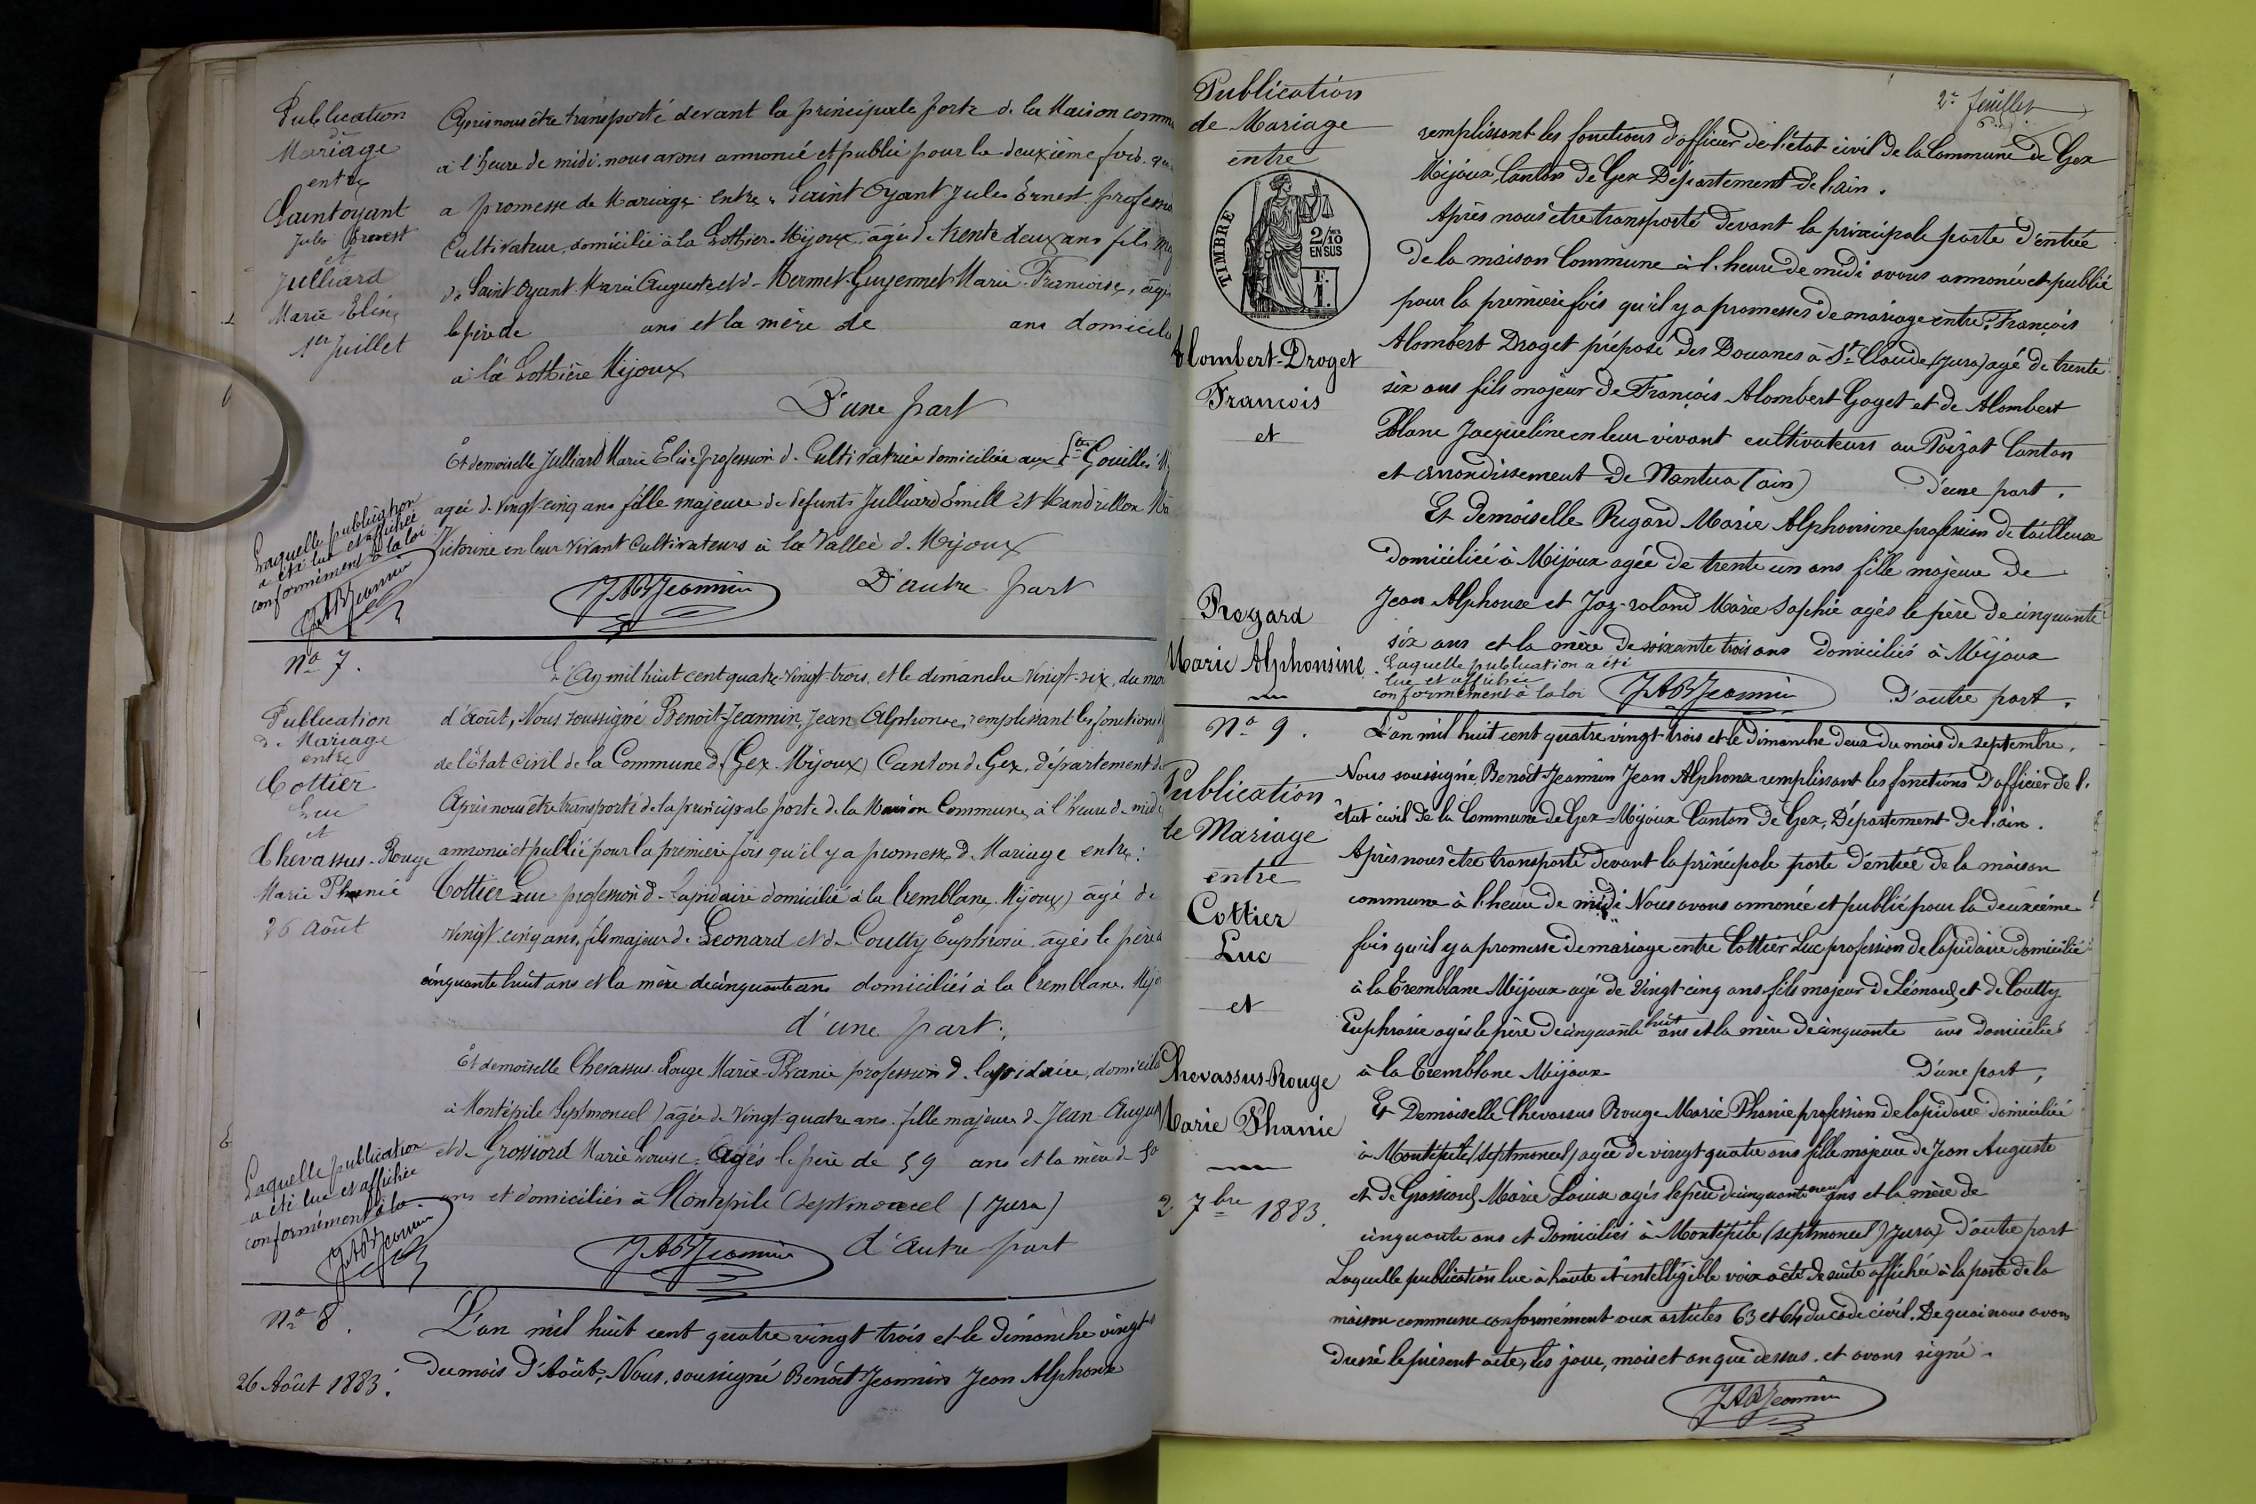 Publication
de
Mariage
entre
Saintoyant
Jules Ernest
et
Julliard
Marie Elise
1er Juillet
Après nous être transporté devant la principale porte de la Maison comm
à l'heure de midi. nous avons annoncé et publié pour la deuxième fois. qu
a promesse de Mariage entre. Saint Oyant Jules Ernest. profess
Cultivateur, domicilié à la Mijoux, agé de trente deux ans fils maj
de Saint Oyant Marie Auguste et de Mermet-Guyennet Marie Françoise, âgés
le père de ans et la mère de ans domicilié
à la Mijoux
D'une part
Et demoiselle Julliard Marie Elise profession de Cultivatrice domiciliée aux Gouilles
agée de vingt-cinq ans fille majeure de defunts Julliard Emile et Mandrillon Ma
Victorine en leur vivant Cultivateurs à la Vallée de Mijoux
D'autre part
Laquelle publication
a été lue et affichée
conformément à la loi
JABJeannin
JABJeannin
No 7.
Publication
de Mariage
entre
Cottier
Luc
et
Chevassus-Rouge
Marie Phanie
26 Août
L'an mil huit cent quatre-vingt-trois, et le dimanche vingt-six, du moi
d'Août, Nous soussigné Benoît-Jeannin, Jean Alphonse, remplissant les fonctions d'
de l'État Civil de la Commune de (Gex-Mijoux) Canton de Gex, département de
Après nous être transporté de la principale porte de la Maison Commune, à l'heure de midi
annoncé et publié pour la première fois qu'il y a promesse de Mariage entre:
Cottier Luc profession de Lapidaire domicilié à la Cremblane, Mijoux) âgé de
vingt cinq ans, fils majeur de Leonard et de Coutty Euphrosie âgés le père d
cinquante huit ans et la mère de cinquante ans domiciliés à la Cremblane. Mijo
d'une part;
Et demoiselle Chevassus-Rouge Marie-Phanie profession de lapidaire, domicilié
à Montépile Septmoncel) agée de vingt-quatre ans fille majeure de Jean-August
et de Grossiord Marie Louise. Agés le père de 59 ans et la mère de 50
ans et domiciliés à Montépile (Septmoncel (Jura)
d'autre part
Laquelle publication
a été lue et affichée
conformément à la
JABJeannin
JABJeannin
No 8.
26 Août 1883.
L'an mil huit cent quatre vingt trois et le dimanche vingt s
du mois d'Août, Nous, soussigné Benoît Jeannin Jean Alphonse
2e feuillet
Publication
de Mariage
entre
TIMBRE
2/10
EN SUS
Alombert-Droget
François
et
Regard
Marie Alphonsine
remplissant les fonctions d'officier de l'état civil de la Commune de Gex
Mijoux Canton de Gex Département de l'ain.
Après nous être transporté devant la principale porte d'entrée
de la maison Commune à l'heure de midi avons annoncé et publié
pour la première fois qu'il y a promesses de mariage entre. François
Alombert Droget préposé des Douanes à St Claude (Jura) agé de trente
six ans fils majeur de François Alombert Goget et de Alombert
Blanc Jacqueline en leur vivant cultivateurs au Poizat Canton
et arrondissement de Nantua (ain) d'une part.
Et Demoiselle Regard Marie Alphonsine profession de tailleuse
domiciliée à Mijoux agée de trente un ans fille majeure de
Jean Alphonse et Marie Sophie agés le père de cinquante
six ans et la mère de soixante trois ans domiciliés à Mijoux
Laquelle publication a été
lue et affichée
conformément à la loi JABJeannin D'autre part.
No 9.
Publication
de Mariage
entre
Cottier
Luc
et
Chevassus-Rouge
Marie Phanie
2 7bre 1883.
L'an mil huit cent quatre vingt trois et le dimanche deux du mois de septembre.
Nous soussigné Benoît Jeannin Jean Alphonse remplissant les fonctions d'officier de l'
état civil de la Commune de Gex-Mijoux Canton de Gex, Département de l'ain.
Après nous être transporté devant la principale porte d'entrée de la maison
commune à l'heure de midi Nous avons annoncé et publié pour la deuxième
fois qu'il y a promesse de mariage entre Cottier Luc profession de lapidaire domicilié
à la Cremblane Mijoux agé de vingt cinq ans fils majeur de Léonard et de Coutty
Euphrosie agés le père de cinquante huit ans et la mère de cinquante ans domiciliés
à la Cremblane Mijoux D'une part,
Et Demoiselle Chevassus Rouge Marie Phanie profession de lapidaire domiciliée
à Montépile (septmoncel) agée de vingt quatre ans fille majeure de Jean Auguste
et de Grossiord Marie Louise agés le père de cinquante neuf ans et la mère de
cinquante ans et domiciliés à Montépile (septmoncel) Jura) D'autre part
Laquelle publication lue à haute et intelligible voix a été de suite affichée à la porte de la
maison commune conformément aux articles 63 et 64 du code civil. De quoi nous avons
dressé le présent acte, les jour, mois et an que dessus. et avons signé.
JABJeannin